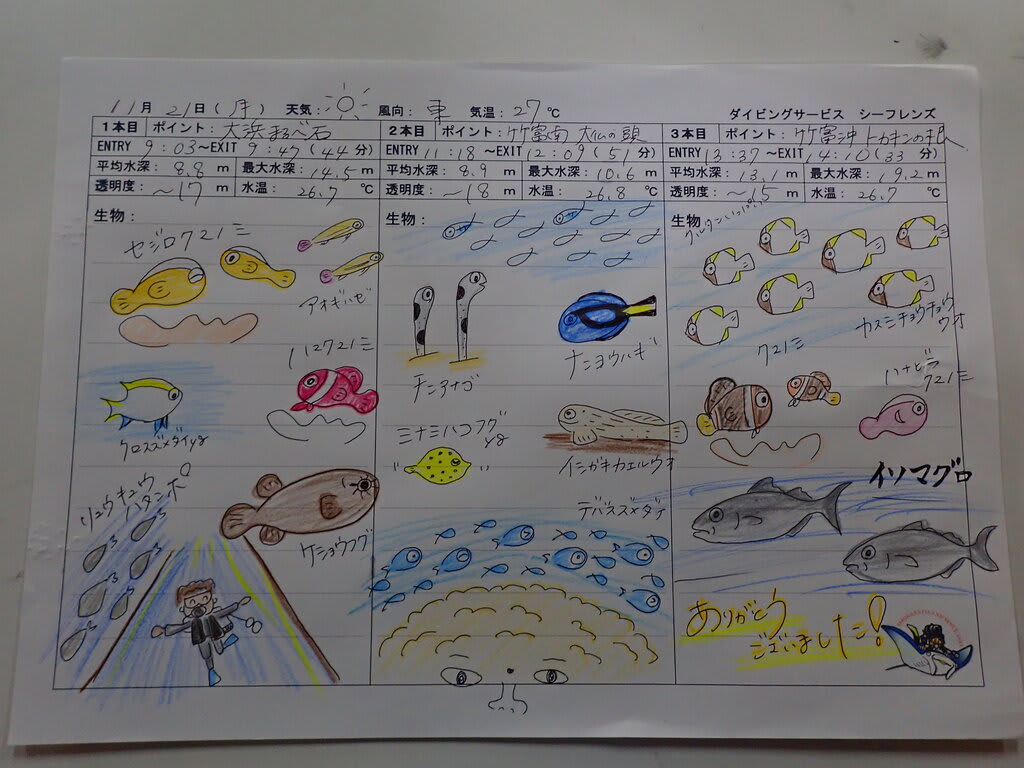 11月 21日(月) 天気: 風向: 東 気温: 27℃
ダイビングサービス シーフレンズ
1本目 ポイント: 大浜
ENTRY 9:03~EXIT 9:47(44分)
平均水深: 8.8 m 最大水深: 14.5 m
透明度: ~17 m 水温: 26.7 ℃
生物:
セジロクマノミ
アオギハゼ
ハマクマノミ
クロスズメダイyg
リュウキュウ
ハタンポ
ケショウフグ
2本目 ポイント: 竹富南 大仏の頭
ENTRY 11:18 ~EXIT 12:09(51分)
平均水深: 8.9 m 最大水深: 10.6 m
透明度: ~18 m 水温: 26.8 ℃
生物:
チンアナゴ
ナンヨウハギ
ミナミハコフグ
yg
イシガキカエルウオ
デバスズメダイ
3本目 ポイント: 竹富沖 トカキンの根
ENTRY 13:37~EXIT 14:10(33分)
平均水深: 13.1 m 最大水深: 19.2 m
透明度: ~15 m 水温: 26.7 ℃
生物:
カスミチョウチョウ
ウオ
クマノミ
ハナビラ
クマノミ
イソマグロ
ありがとう
ございました!